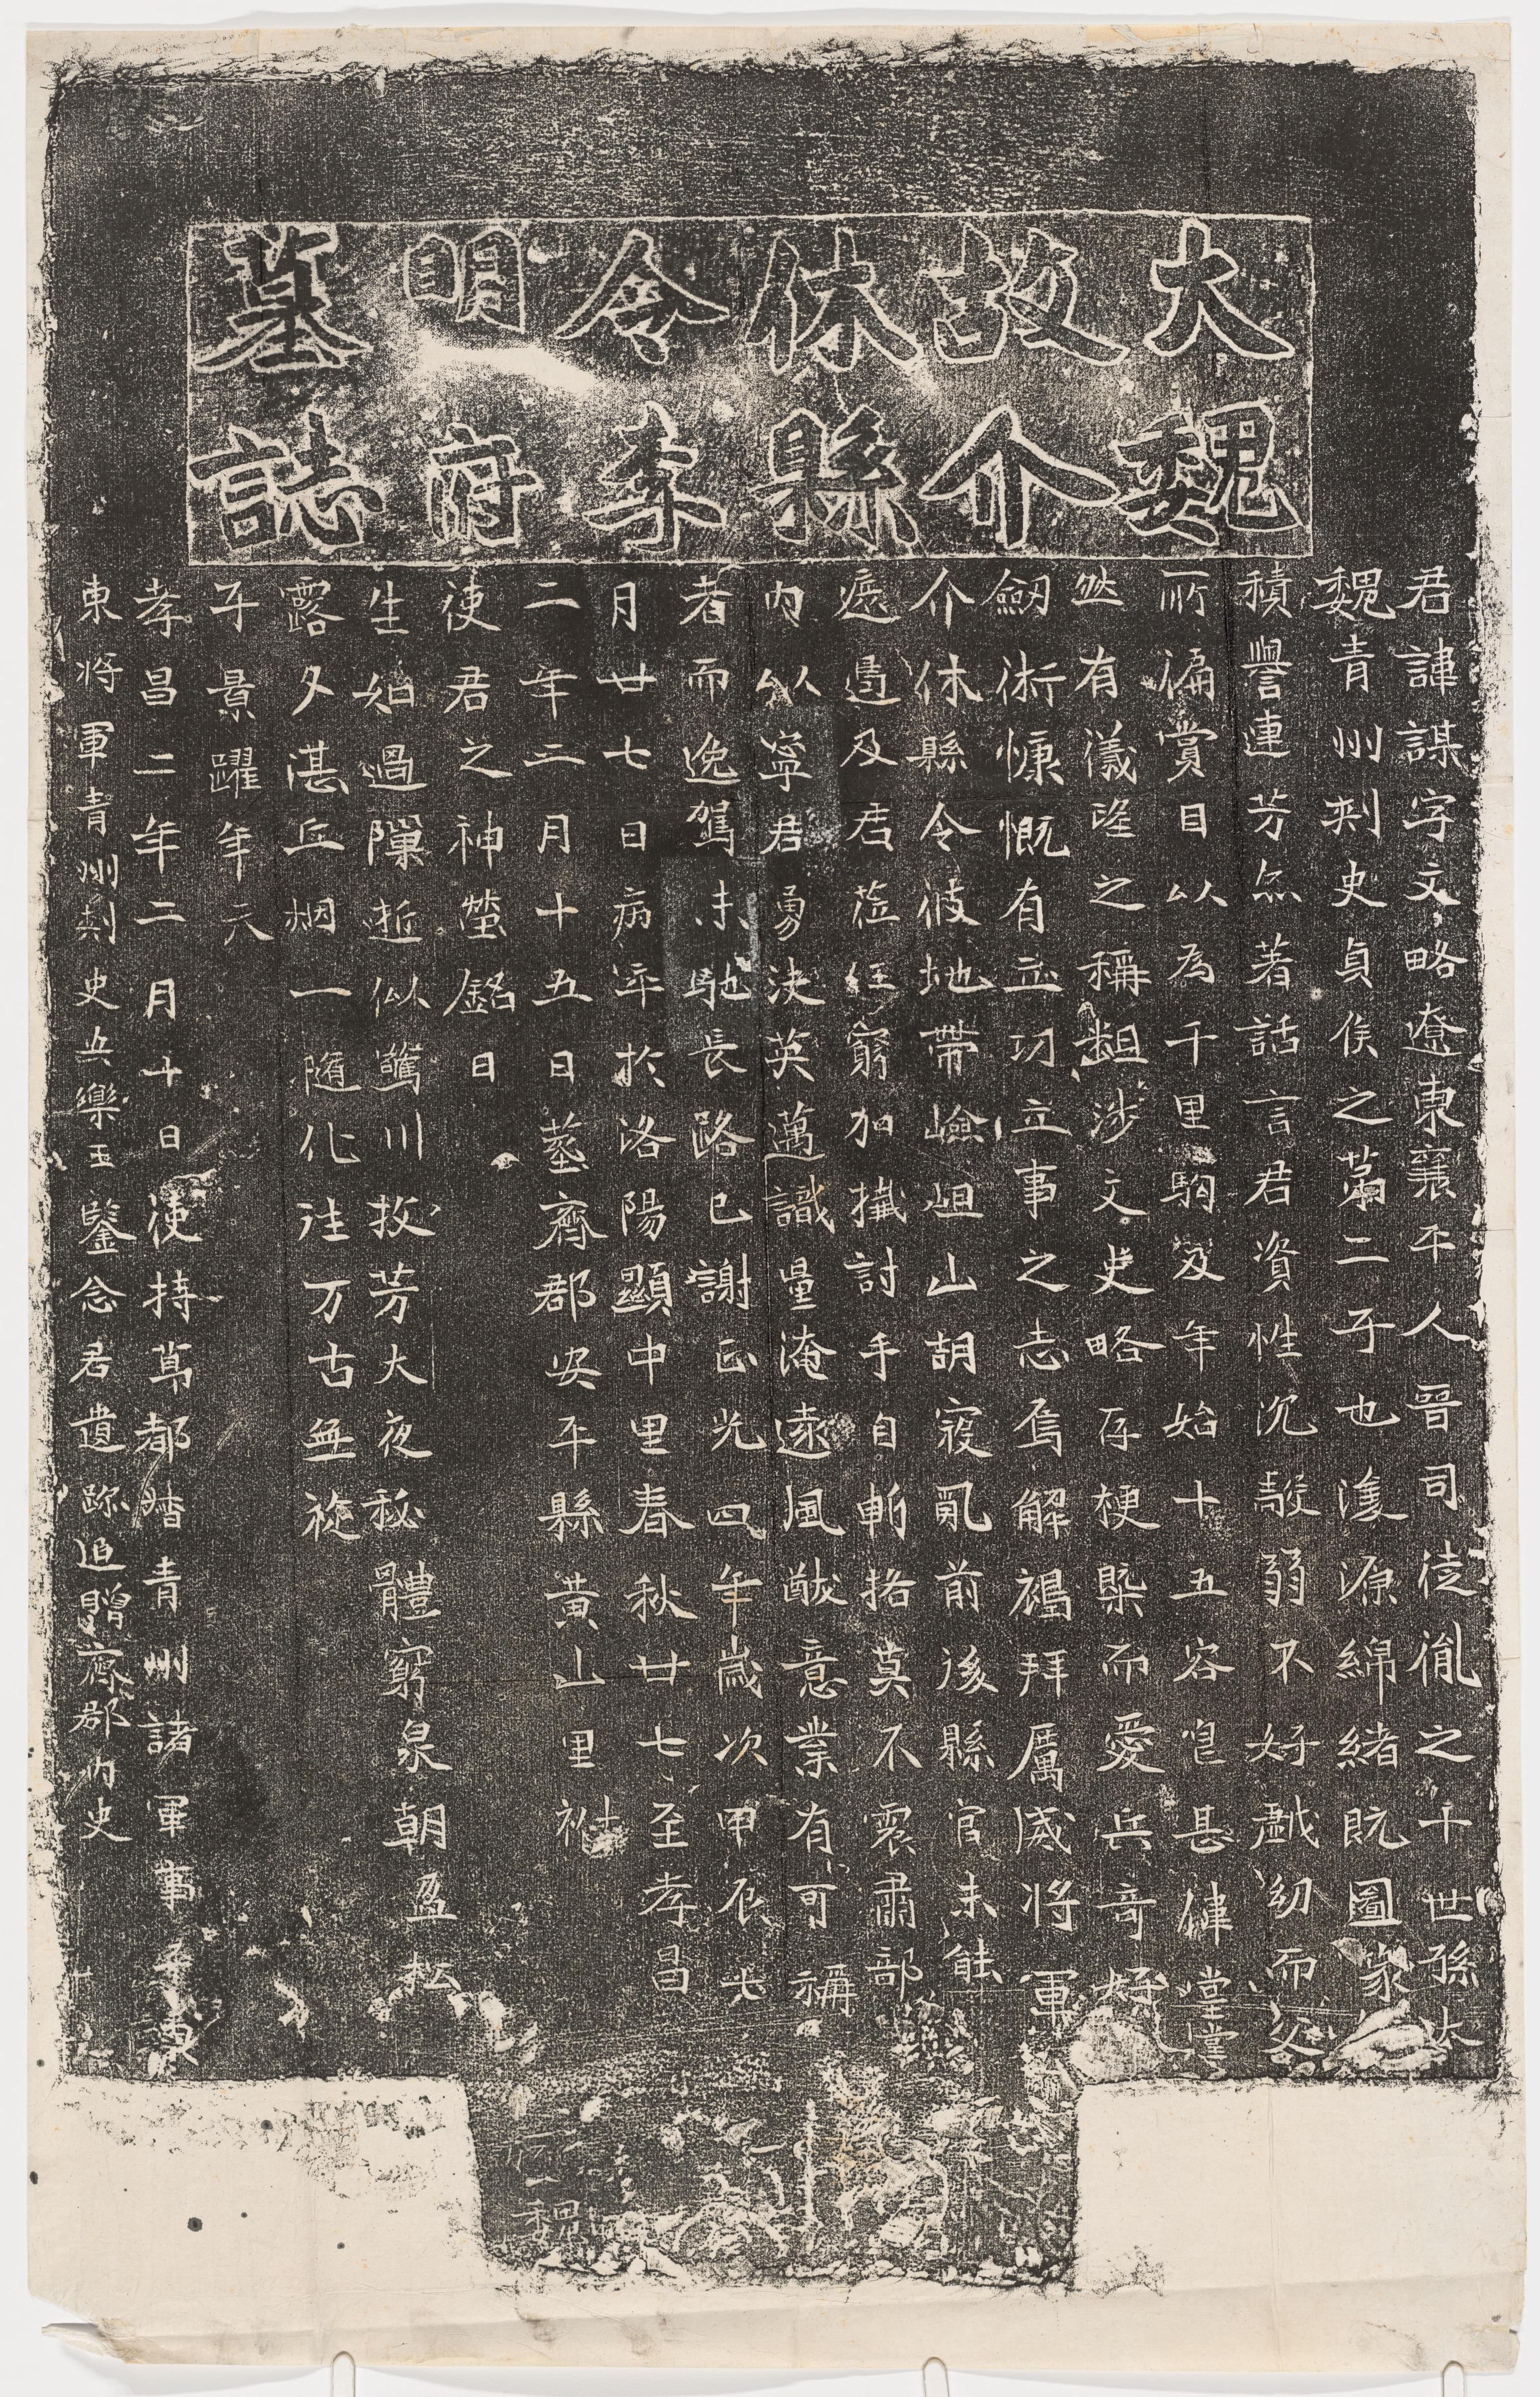 大魏
故介
休縣
令李
明府
墓誌
君諱謀字文略遼東襄平人晉司徒胤之十世孫大
魏青州刾史貞侯之苐二子也濬源綿緒既圖家
積譽連芳亦著話言君資性沉毅弱不好戱幼而父
所偏賞目以為千里駒及年始十五容皃甚偉堂堂
然有儀望之稱粗涉文史略存梗槩而愛兵奇好
劒術慷慨有立功立事之志焉解褐拜厲威將軍
介休縣令彼地帶嶮岨山胡寇亂前後縣官未能
遮遏及君莅任窮加擒討手自斬挌莫不震肅部
內以寧君勇決英邁識量淹遠風猷意業有可稱
者而逸駕未馳長路已謝正光四年歲次甲辰六
月廿七日病卒於洛陽顯中里春秋廿七至孝昌
二年二月十五日塟齊郡安平縣黃山里祔
使君之神塋銘曰
生如過隟逝似驚川故芳大夜秘體窮泉朝盈松
露夕湛丘烟一隨化往万古無旋
子景躍年九
孝昌二年二月十日使持莭都督青州諸軍事
東將軍青州刾史安樂王鑒念君遺跡追贈齊郡內史
魏